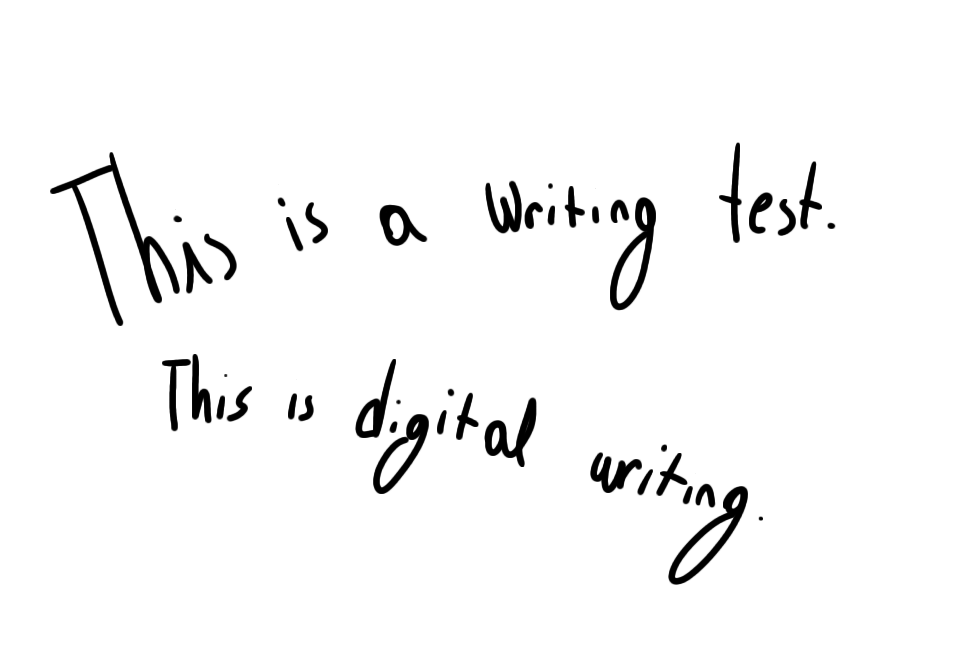 This is a writing test.
This is digital writing.